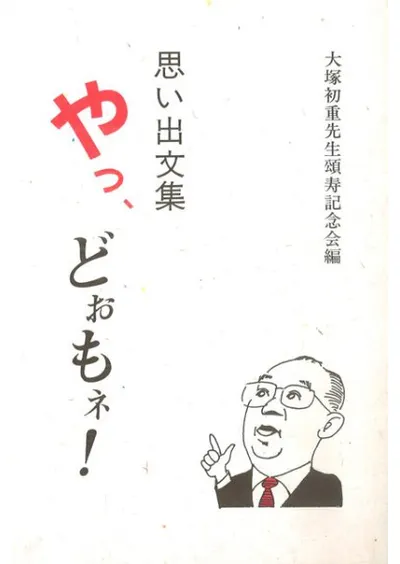 大塚初重先生頌寿記念会編
思い出文集
やっ、
どぉもネ!